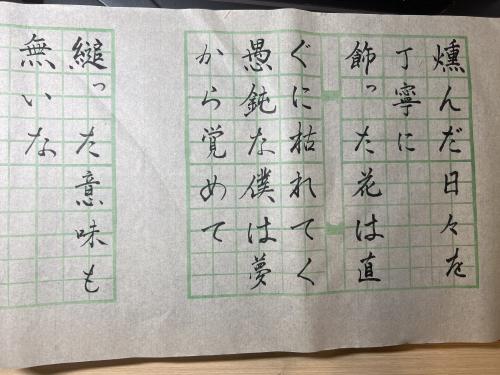 燻んだ日々を
丁寧に
飾った花は直
ぐに枯れてく
愚鈍な僕は夢
から覚めて
縋った意味も
無いな